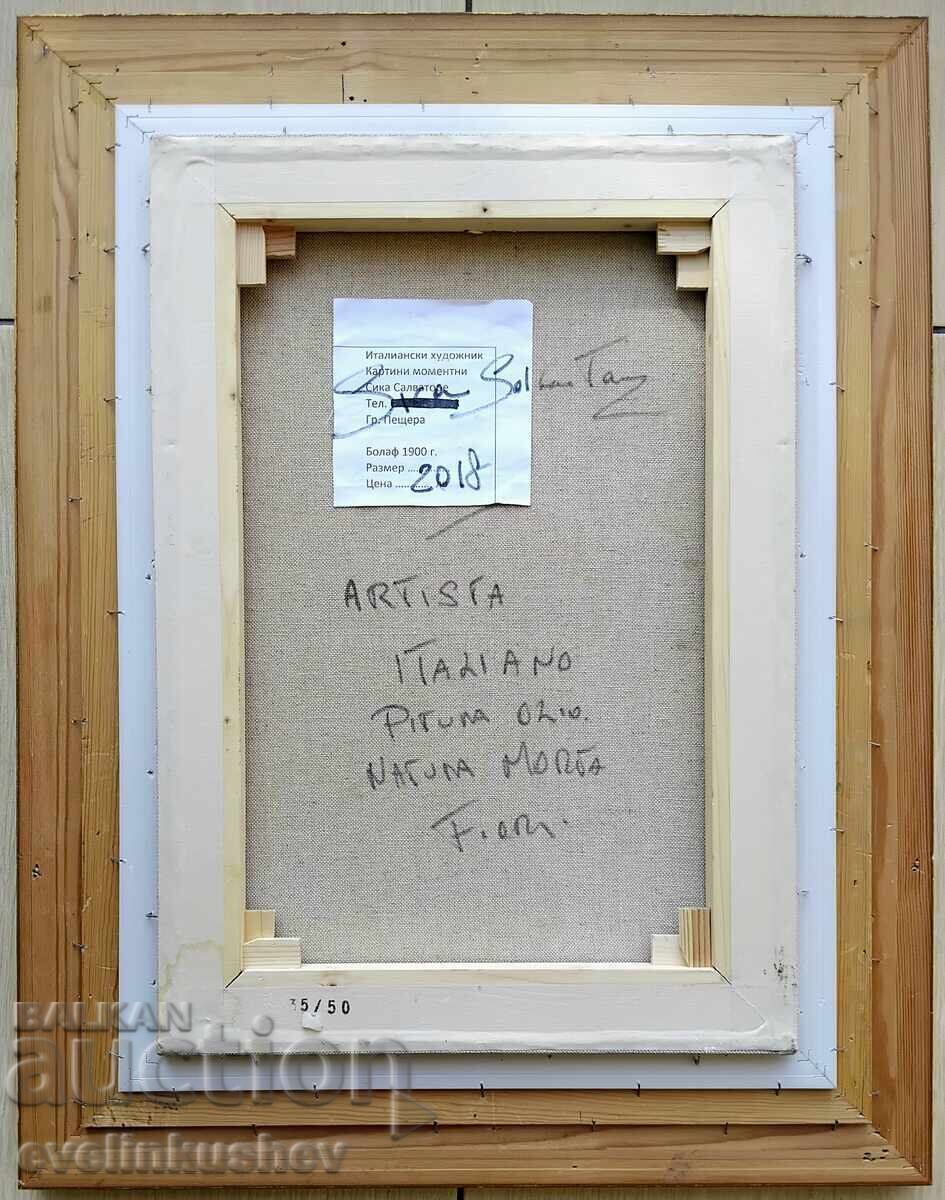 Италиански художник
Картини моментни
Сика Салваторе
Тел.
Гр. Пещера
Болаф 1900 г.
Размер ..........
Цена .............
Sika
2018
ARTISTA
ITALIANO
PITURA OLIO.
NATURA MORTA
FIORI.
35/50
BALKAN
auction
evelinkushev